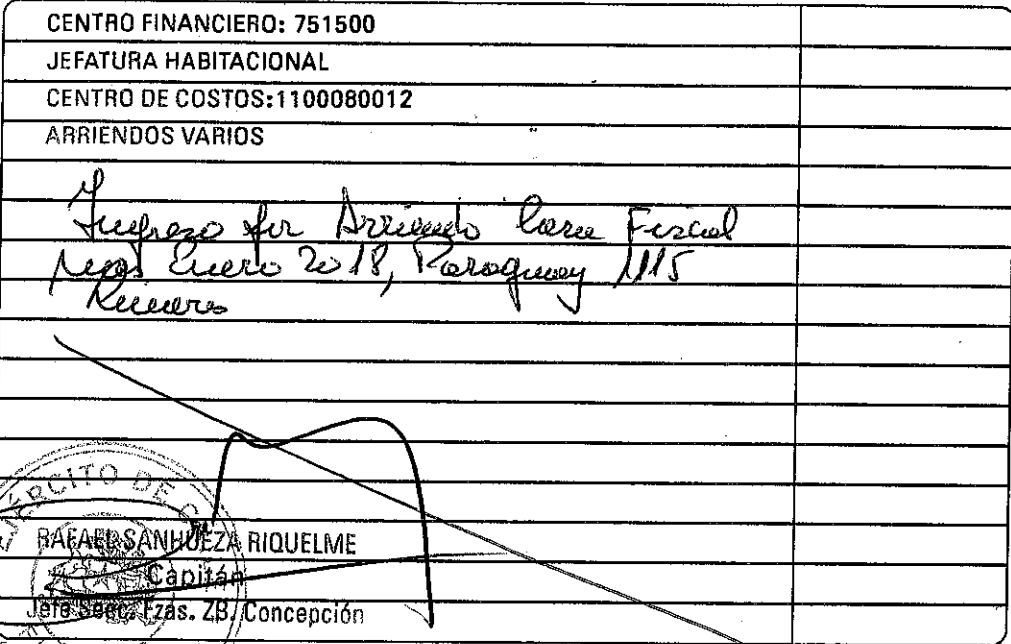 CENTRO FINANCIERO: 751500
JEFATURA HABITACIONAL
CENTRO DE COSTOS:1100080012
ARRIENDOS VARIOS
Ingreso por Arriendo Casa Fiscal
mes Enero 2018, Paraguay 1115
EJÉRCITO DE
RAFAEL SANHUEZA RIQUELME
Capitán
Jefe Secc. Fzas. ZB. Concepción